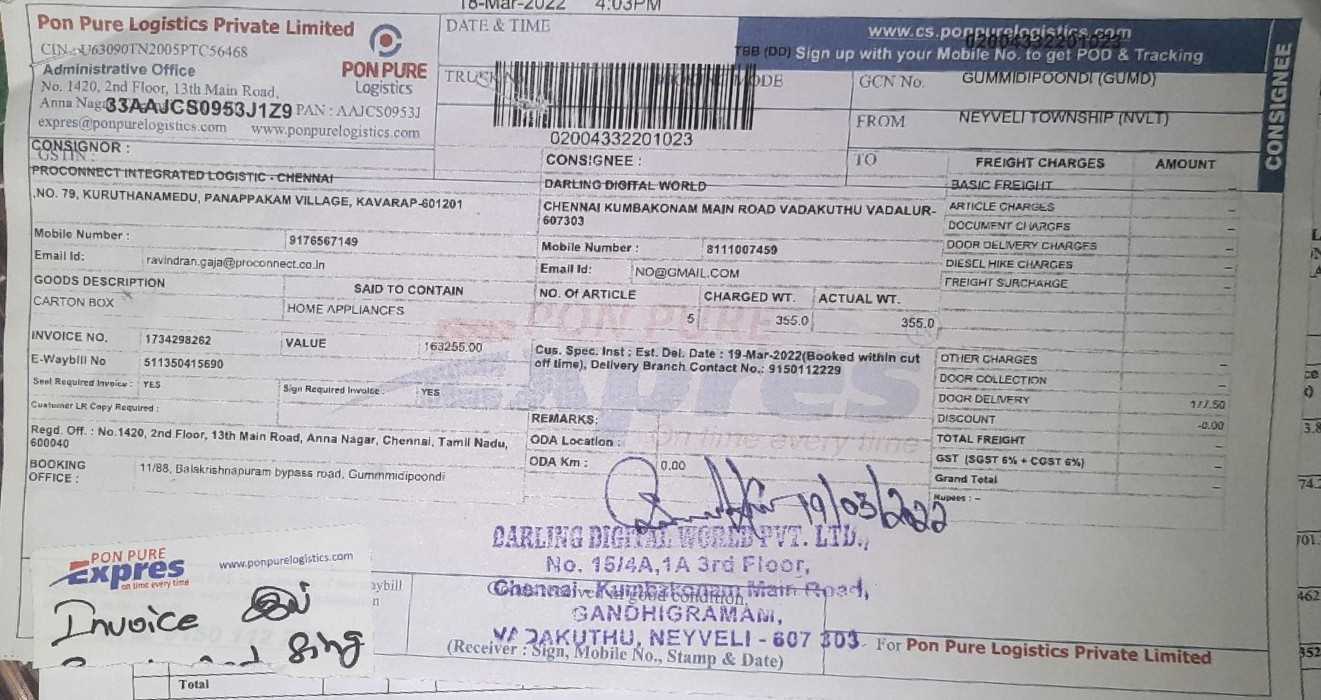 18-Mar-2022 4:03PM
Pon Pure Logistics Private Limited
CIN : U63090TN2005PTC56468
Administrative Office
No. 1420, 2nd Floor, 13th Main Road,
Anna Nag
33AAJCS0953J1Z9 PAN : AAJCS0953J
expres@ponpurelogistics.com www.ponpurelogistics.com
GSTIN :
PON PURE
Logistics
DATE & TIME
TRUCK
MODE
02004332201023
www.cs.ponpurelogistics.com
02004332201023
TBB (DD) Sign up with your Mobile No. to get POD & Tracking
GCN No.
GUMMIDIPOONDI (GUMD)
FROM
NEYVELI TOWNSHIP (NVLT)
TO
CONSIGNEE
CONSIGNOR :
PROCONNECT INTEGRATED LOGISTIC - CHENNAI
,NO. 79, KURUTHANAMEDU, PANAPPAKAM VILLAGE, KAVARAP-601201
Mobile Number : 9176567149
Email Id: ravindran.gaja@proconnect.co.in
CONSIGNEE :
DARLING DIGITAL WORLD
CHENNAI KUMBAKONAM MAIN ROAD VADAKUTHU VADALUR-
607303
Mobile Number : 8111007459
Email Id: NO@GMAIL.COM
GOODS DESCRIPTION SAID TO CONTAIN
CARTON BOX HOME APPLIANCES
NO. Of ARTICLE CHARGED WT. ACTUAL WT.
5 355.0 355.0
INVOICE NO. 1734298262 VALUE 163255.00
E-Waybill No 511350415690
Seel Required Invoice : YES Sign Required Invoice : YES
Customer LR Copy Required :
Cus. Spec. Inst : Est. Del. Date : 19-Mar-2022(Booked within cut
off time), Delivery Branch Contact No.: 9150112229
REMARKS:
ODA Location :
ODA Km : 0.00
Regd. Off. : No.1420, 2nd Floor, 13th Main Road, Anna Nagar, Chennai, Tamil Nadu,
600040
BOOKING
OFFICE :
11/88, Balakrishnapuram bypass road, Gummmidipoondi
FREIGHT CHARGES AMOUNT
BASIC FREIGHT –
ARTICLE CHARGES –
DOCUMENT CHARGES –
DOOR DELIVERY CHARGES –
DIESEL HIKE CHARGES –
FREIGHT SURCHARGE –
OTHER CHARGES –
DOOR COLLECTION –
DOOR DELIVERY 177.50
DISCOUNT -0.00
TOTAL FREIGHT –
GST (SGST 6% + CGST 6%) –
Grand Total –
Rupees : –
PON PURE
Expres
on time every time
19/03/2022
DARLING DIGITAL WORLD PVT. LTD.,
No. 15/4A,1A 3rd Floor,
Chennai-Kumbakonam Main Road,
GANDHIGRAMAM,
VADAKUTHU, NEYVELI - 607 303
in good condition,
(Receiver : Sign, Mobile No., Stamp & Date)
For Pon Pure Logistics Private Limited
PON PURE
Expres
on time every time
www.ponpurelogistics.com
Invoice இல்
and Sing
aybill
Total